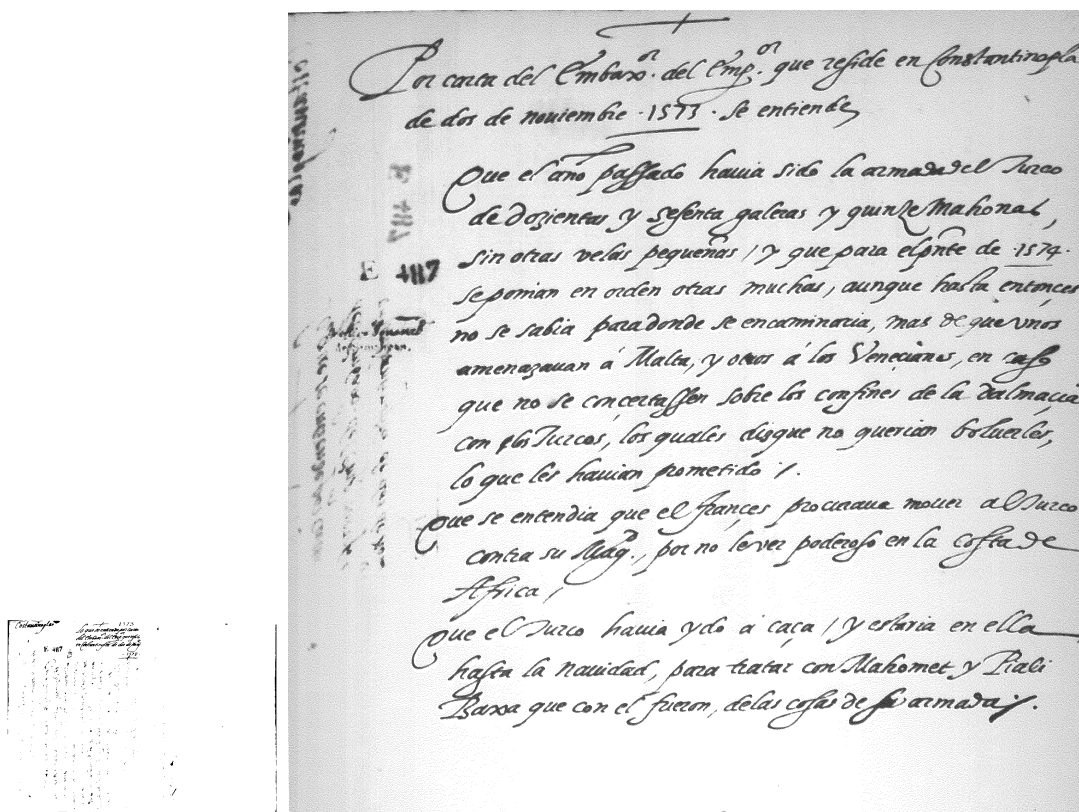 Por carta del Embaxor. del Empor. que reside en Constantinopla
de dos de nouiembre .1573. se entiende
Que el año passado hauia sido la armada del Turco
de dozientas y sesenta galeras y quinze Mahonas,
sin otras velas pequeñas / y que para el pnte de .1574.
se ponian en orden otras muchas, aunque hasta entonces
no se sabia paradonde se encaminaria, mas de que vnos
amenazauan á Malta, y otros á los Veneçianos, en caso
que no se concertassen sobre los confines de la Dalmacia
con los Turcos, los quales dizque no querian boluerles,
lo que les hauian prometido /.
Que se entendia que el françes procuraua mouer al Turco
contra su Magd., por no le ver poderoso en la costa de
Africa /
Que el Turco hauia ydo á caça / y estaria en ella
hasta la nauidad, para tratar con Mahomet y Piali
Baxa que con el fueron, de las cosas de su armada /.
E 487
Constantinopla
1573
E 487